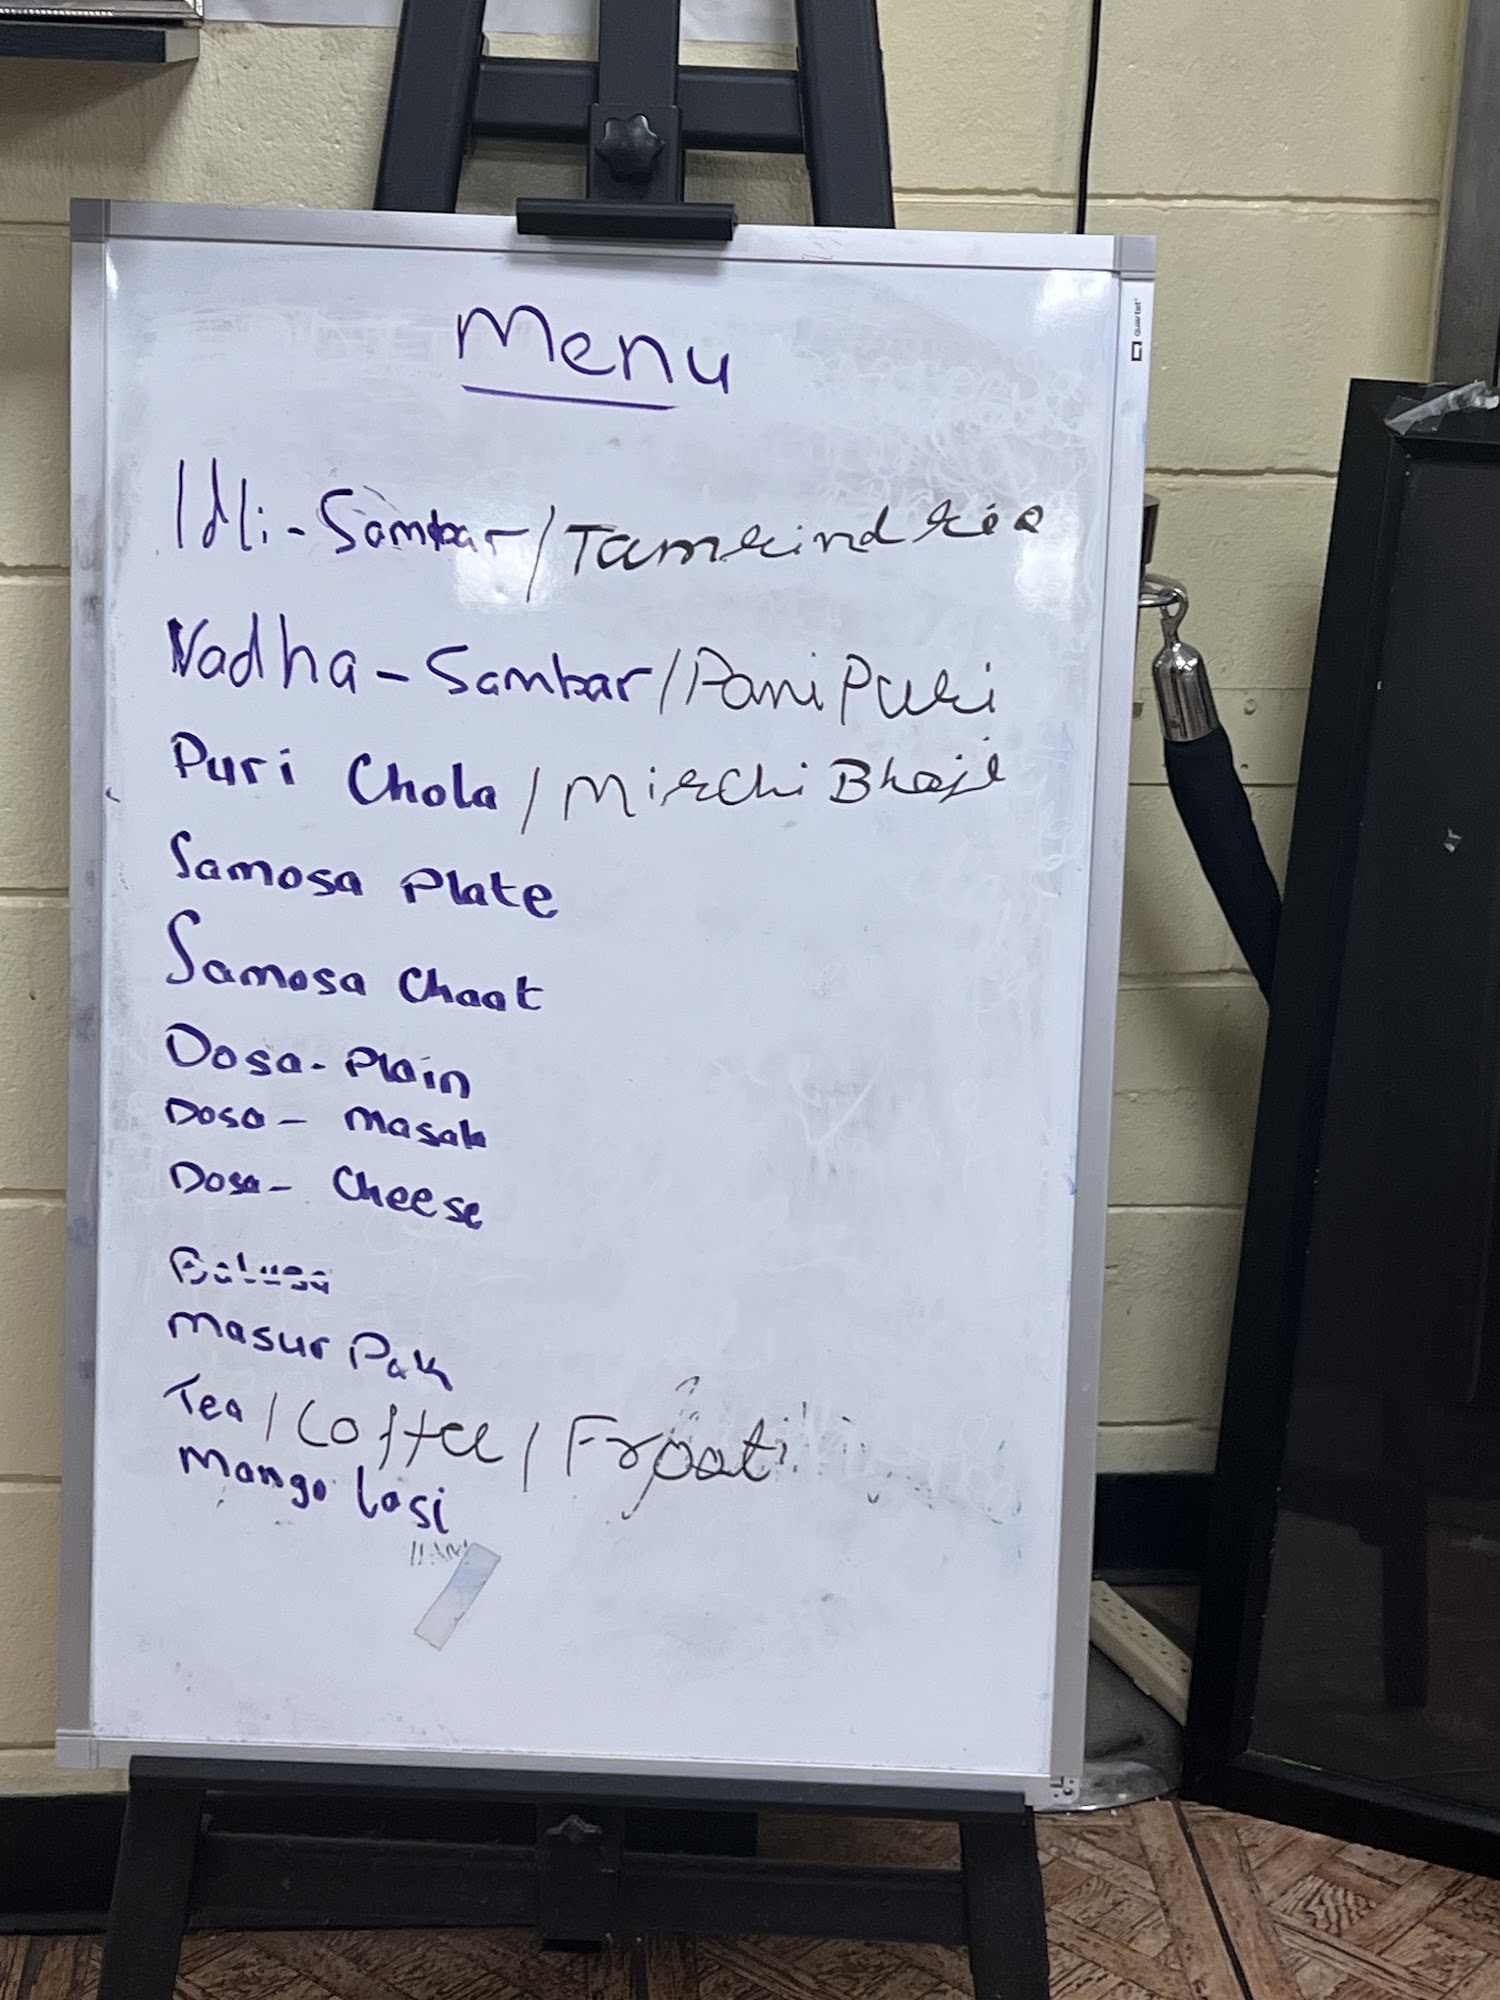 Menu
Idli-Sambar/Tamrind rice
Vadha-Sambar/Pani Puri
Puri Chola/Mirchi Bhaji
Samosa Plate
Samosa Chaat
Dosa-Plain
Dosa-Masala
Dosa-Cheese
Masur Pak
Tea/Coffee/Frooti
Mango lasi
quartet